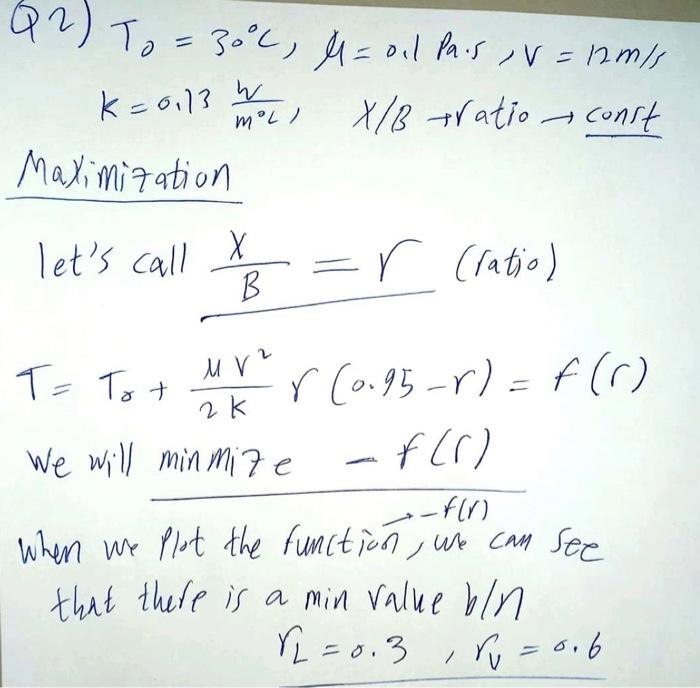 Q2) T₀ = 30°C, μ = 0.1 Pa.s, V = 12 m/s
k = 0.13 W/m°C, X/B → ratio → const
Maximization
let's call X/B = r (ratio)
T = T₀ + μV²/2k r (0.95 - r) = f(r)
We will minmize - f(r)
→ -f(r)
When we Plot the function, we can see
that there is a min value b/n
r_L = 0.3, r_U = 0.6